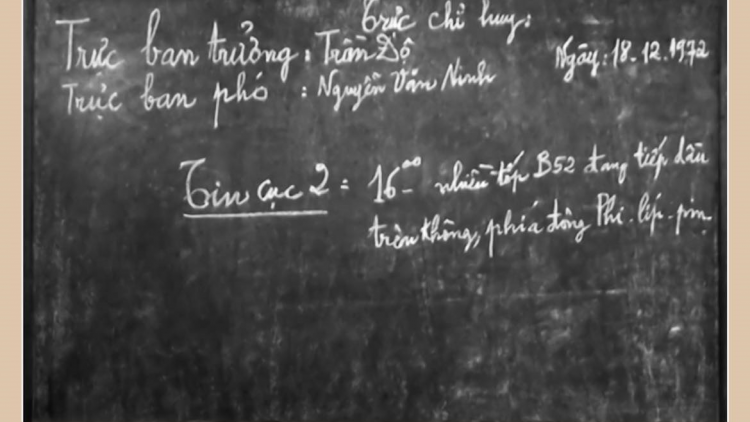 Trực chỉ huy:
Trực ban trưởng: Trần Độ
Ngày: 18.12.1972
Trực ban phó : Nguyễn Văn Ninh
Tin cục 2 = 16⁰⁰ nhiều tốp B52 đang tiếp dầu
trên không, phía đông Phi-líp-pin.